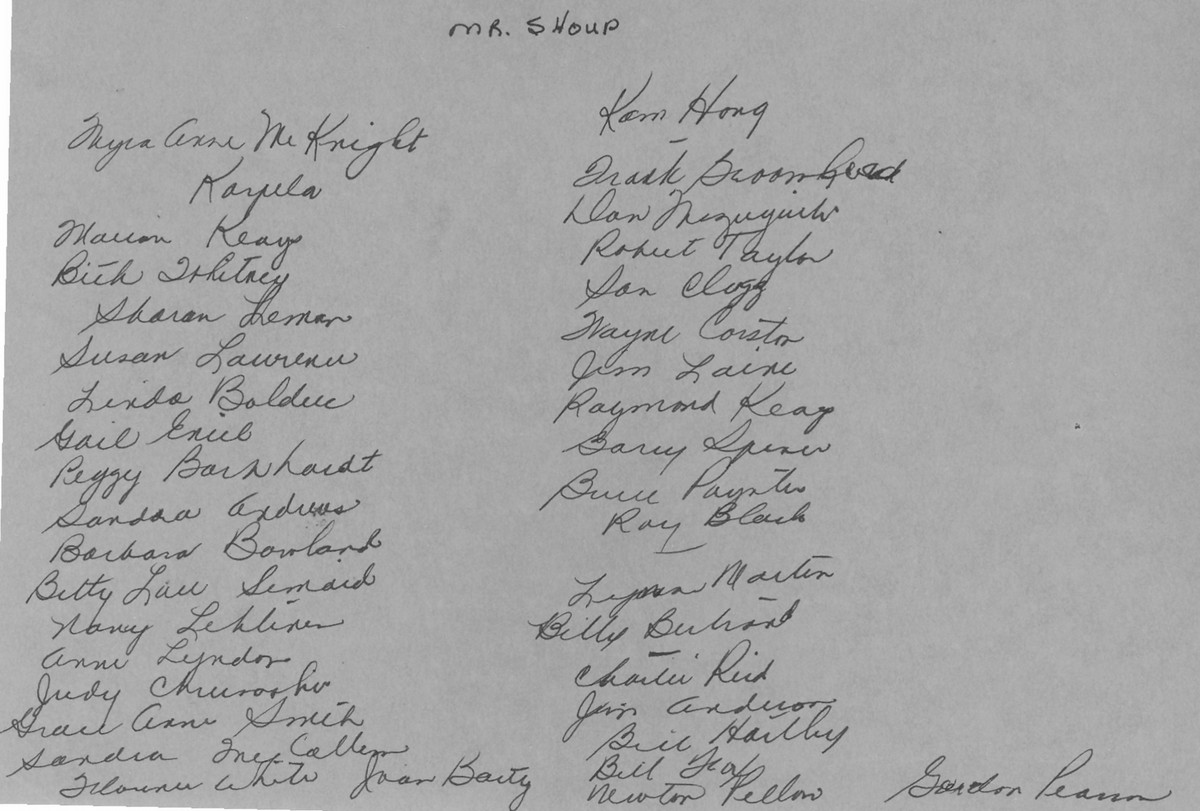 MR. SHOUP
Myra Anne McKnight
Karpela
Marion Keays
Whitney
Sharan Leman
Susan Laurence
Linda Bolduc
Gail
Peggy Barnhardt
Sandra Andrews
Barbara Bowland
Betty Lou Simard
Nancy Lehtinen
Anne Lyndon
Judy
Grace Anne Smith
Sandra McCallum
Florence White Joan Baity
Kam Hong
Frank Broomhead
Dan
Robert Taylor
Don Clogg
Wayne Corston
Jim Laine
Raymond Keay
Barry Spencer
Bruce Paynter
Ray Black
Lynn Martin
Billy Bertrand
Charlie Reid
Jim Anderson
Bill Hartley
Bill
Newton Pellow
Gordon Pearson